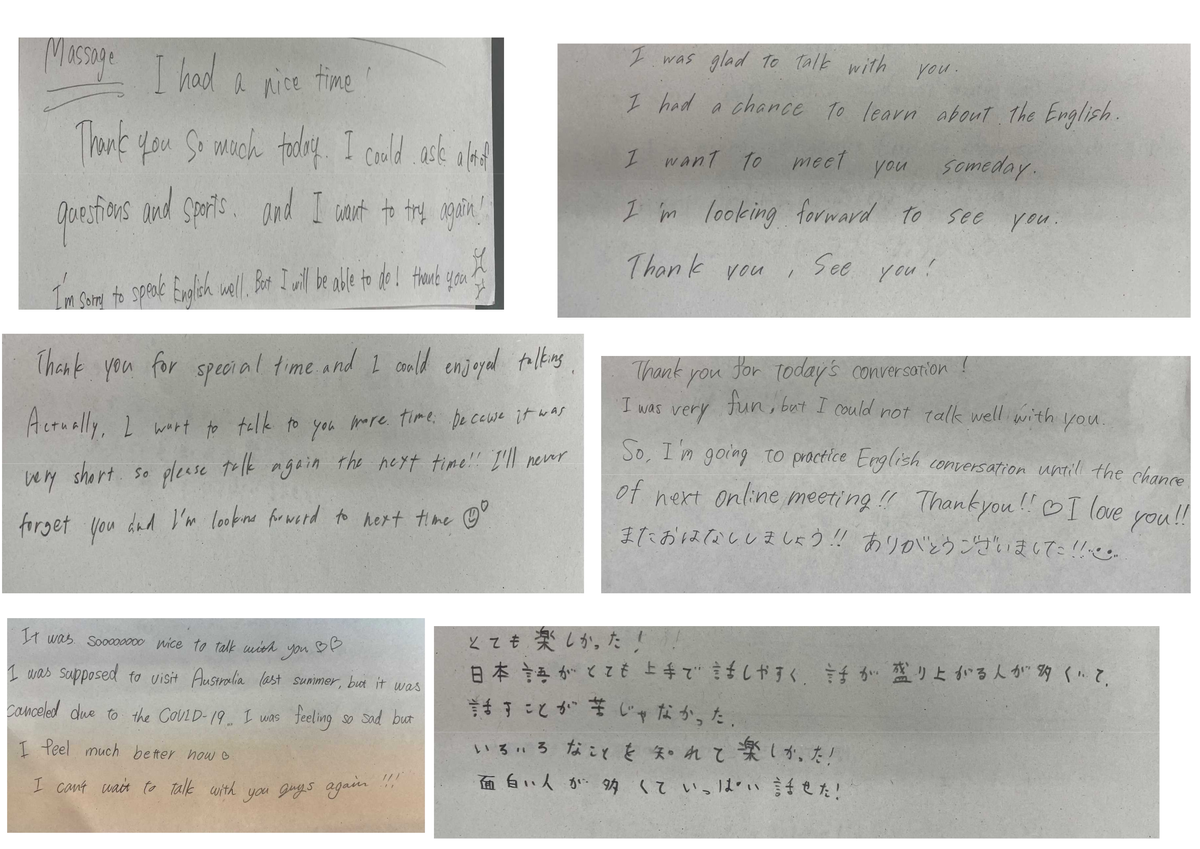 Massage
I had a nice time!
Thank you so much today. I could ask a lot of
questions and sports. and I want to try again!
I'm sorry to speak English well. But I will be able to do! thank you
I was glad to talk with you.
I had a chance to learn about the English.
I want to meet you someday.
I'm looking forward to see you.
Thank you, See you!
Thank you for special time and I could enjoyed talking.
Actually, I want to talk to you more time. because it was
very short. so please talk again the next time!! I'll never
forget you and I'm looking forward to next time
Thank you for today's conversation!
I was very fun, but I could not talk well with you.
So, I'm going to practice English conversation until the chance
of next online meeting!! Thankyou!! ♡I love you!!
またおはなししましょう!! ありがとうございました!!
It was soooooooo nice to talk with you ♡♡
I was supposed to visit Australia last summer, but it was
canceled due to the COVID-19.. I was feeling so sad but
I feel much better now♡
I can't wait to talk with you guys again!!!
とても楽しかった!
日本語がとても上手で話しやすく、話が盛り上がる人が多くいて、
話すことが苦じゃなかった。
いろいろなことを知れて楽しかった!
面白い人が多くていっぱい話せた!